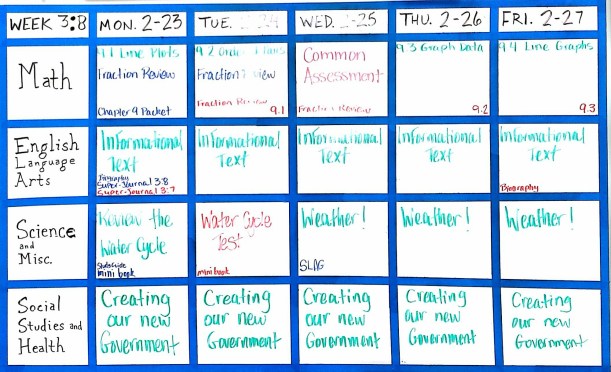 WEEK 3:8
MON. 2-23
TUE. 2-24
WED. 2-25
THU. 2-26
FRI. 2-27
Math
9.1 Line Plots
Fraction Review
Chapter 9 Packet
9.2
Fraction Review
Fraction Review
9.1
Common
Assessment
Fraction Review
9.3 Graph Data
9.2
9.4 Line Graphs
9.3
English
Language
Arts
Informational
Text
Biography
Super-Journal 3:8
Super-Journal 3:7
Informational
Text
Informational
Text
Informational
Text
Informational
Text
Biography
Science
and
Misc.
Review the
Water Cycle
mini book
Water Cycle
Test
mini book
Weather!
SLAG
Weather!
Weather!
Social
Studies and
Health
Creating
our new
Government
Creating
our new
Government
Creating
our new
Government
Creating
our new
Government
Creating
our new
Government